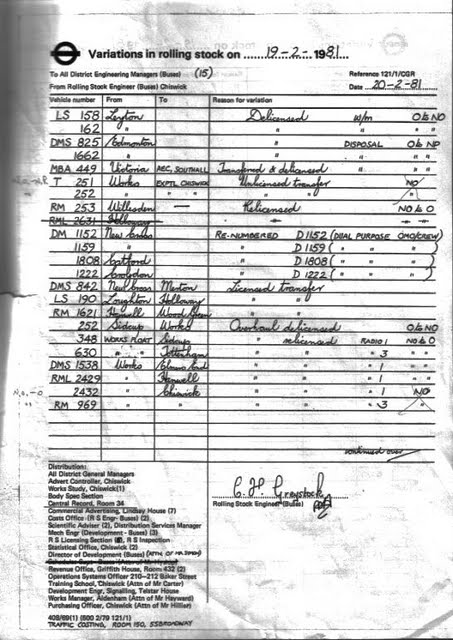 Variations in rolling stock on 19-2-1981
To All District Engineering Managers (Buses) (15) Reference 121/1/CGR
From Rolling Stock Engineer (Buses) Chiswick Date 20-2-81
Vehicle number From To Reason for variation
LS 158 Leyton Delicensed w/m O to NO
162 " " " "
DMS 825 Edmonton DISPOSAL O to NP
1662 " " " " "
MBA 449 Victoria AEC, SOUTHALL Transferred & delicensed " " "
T 251 Works EXPTL CHISWICK Unlicensed transfer NO
252 " " " " "
RM 253 Willesden — Relicensed NO to O
RML 2631 Holloway
DM 1152 New Cross RE-NUMBERED D 1152 (DUAL PURPOSE OMO/CREW)
1159 " " D 1159 ( " " " )
1808 Catford " D 1808 ( " " " )
1222 Croydon " D 1222 ( " " " )
DMS 842 New Cross Merton Licensed transfer
LS 190 Loughton Holloway " "
RM 1621 Hanwell Wood Green " "
252 Sidcup Works Overhaul delicensed O to NO
348 WORKS FLOAT Sidcup " relicensed RADIO 1 NO to O
630 " " Tottenham " " " 3 " "
DMS 1538 Works Elmers End " " " 1 " "
RML 2429 " Hanwell " " " 1 " "
N.O.-O 2432 " Chiswick " " " 1 NO
RM 969 " " " " " 3 "
continued over
Distribution:
All District General Managers
Advert Controller, Chiswick
Works Study, Chiswick(1)
Body Spec Section
Central Record, Room 34
Commercial Advertising, Lindsay House (7)
Costs Office (R S Engr- Buses) (2)
Scientific Adviser (2), Distribution Services Manager
Mech Engr (Development - Buses) (3)
R S Licensing Section, R S Inspection
Statistical Office, Chiswick (2)
Director of Development (Buses)
Schedules Dept - Buses
Revenue Office, Griffith House, Room 432 (2)
Operations Systems Officer 210-212 Baker Street
Training School, Chiswick (Attn of Mr Carter)
Development Engr, Signalling, Telstar House
Works Manager, Aldenham (Attn of Mr Hayward)
Purchasing Officer, Chiswick (Attn of Mr Hillier)
C H Greystock
Rolling Stock Engineer (Buses)
408/69(1) (500 2/79 121/1)
TRAFFIC COSTING, ROOM 150, 55 BROADWAY